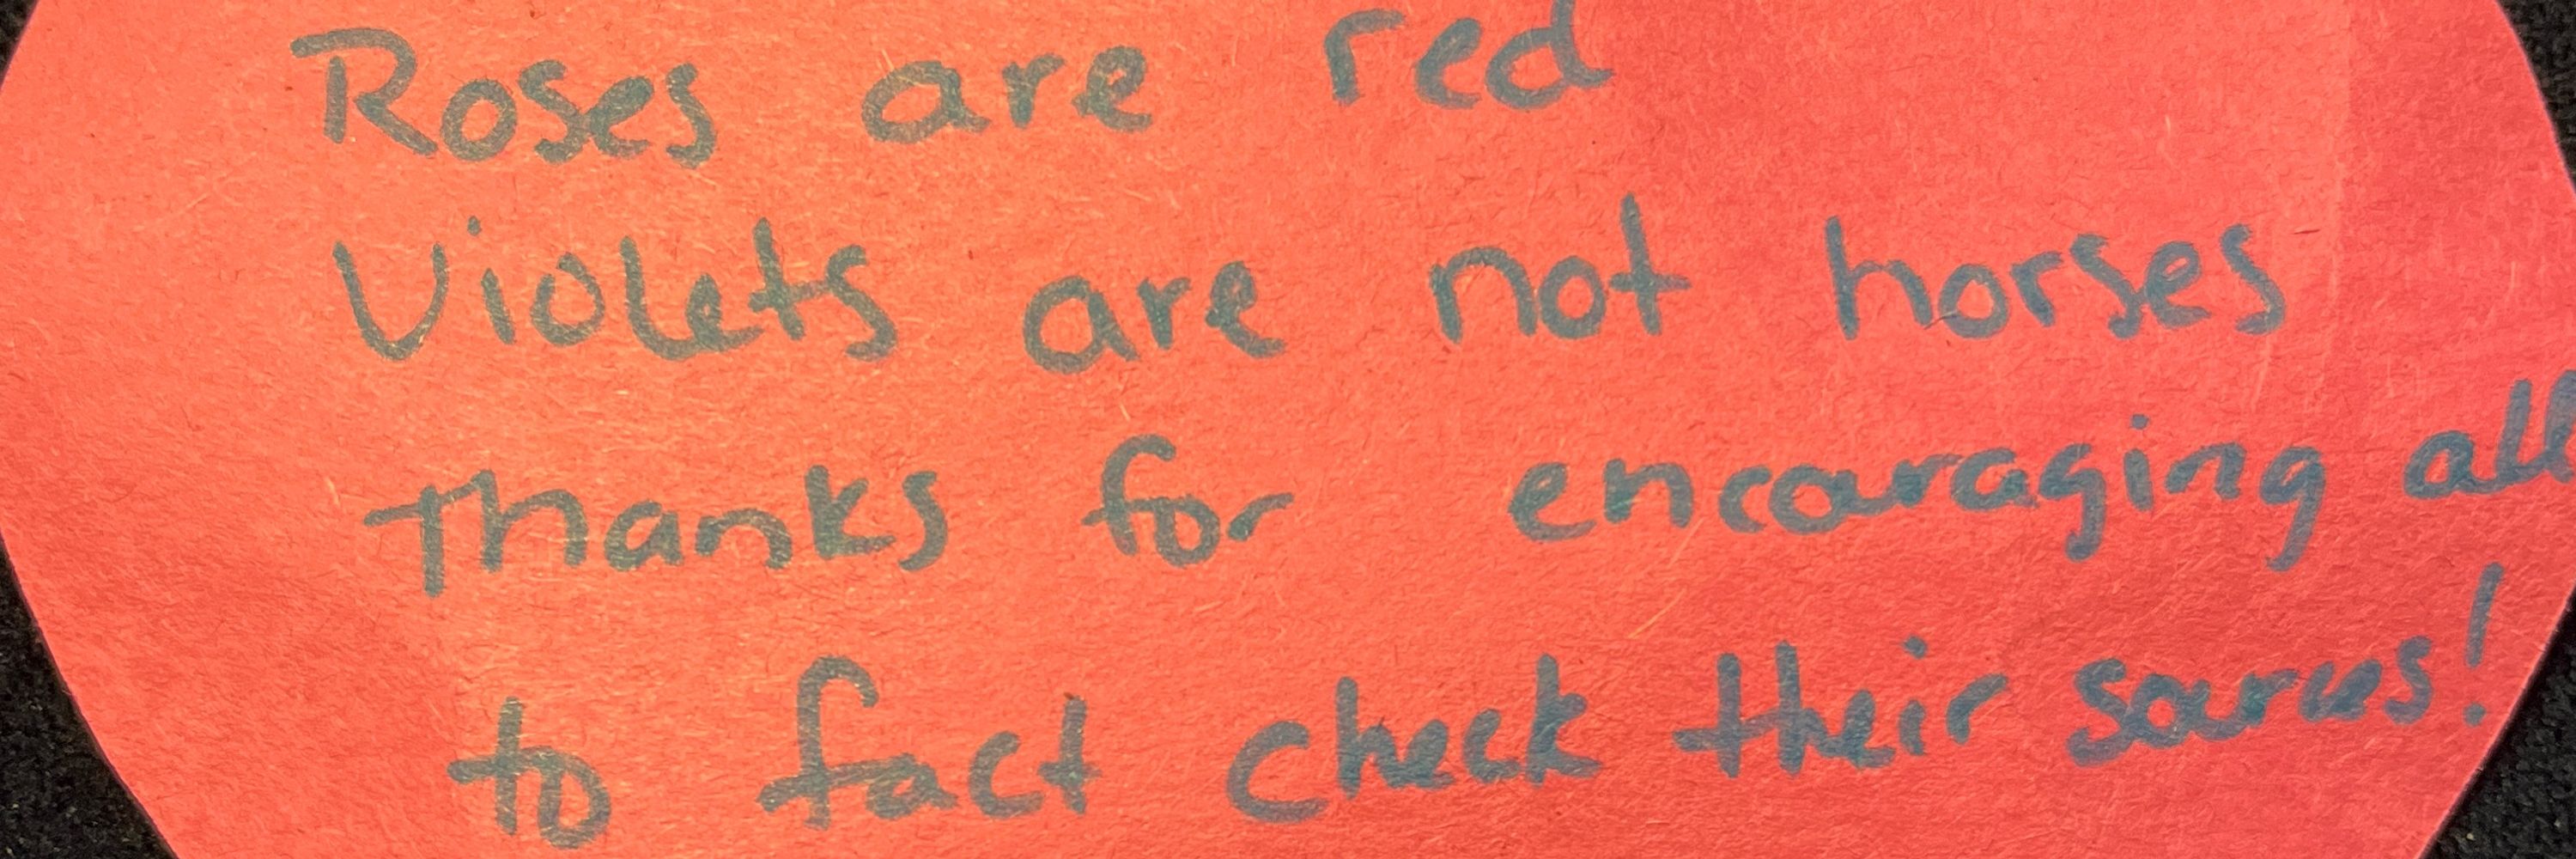 Roses are red
Violets are not horses
Thanks for encouraging all
to fact check their sources!